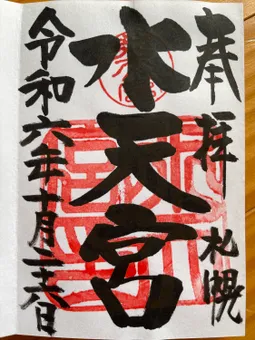 奉拝 札幌
水天宮
令和六年十月二十六日